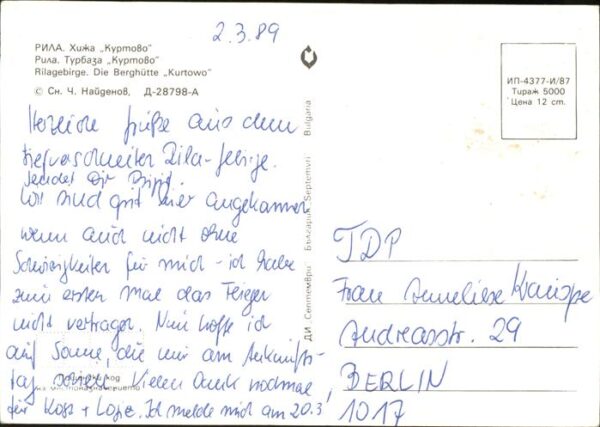 2.3.89
РИЛА. Хижа „Куртово"
Рила. Турбаза „Куртово"
Rilagebirge. Die Berghütte „Kurtowo"
© Сн. Ч. Найденов, Д-28798-А
ИП-4377-И/87
Тираж 5000
Цена 12 ст.
ДИ „Септември" България „Septemvri" Bulgaria
Herzliche Grüße aus dem
tiefverschneiten Rila-Gebirge.
sendet Dir
Wir sind gut hier angekommen
wenn auch nicht ohne
Schwierigkeiten für mich - ich habe
zum ersten Mal das Fliegen
nicht vertragen. Nun hoffe ich
auf Sonne, die mir am Ankunfts-
tag schien. Vielen Dank nochmal
für Ich melde mich am 20.3,
TDP
Frau Anneliese
Andreasstr. 29
BERLIN
1017